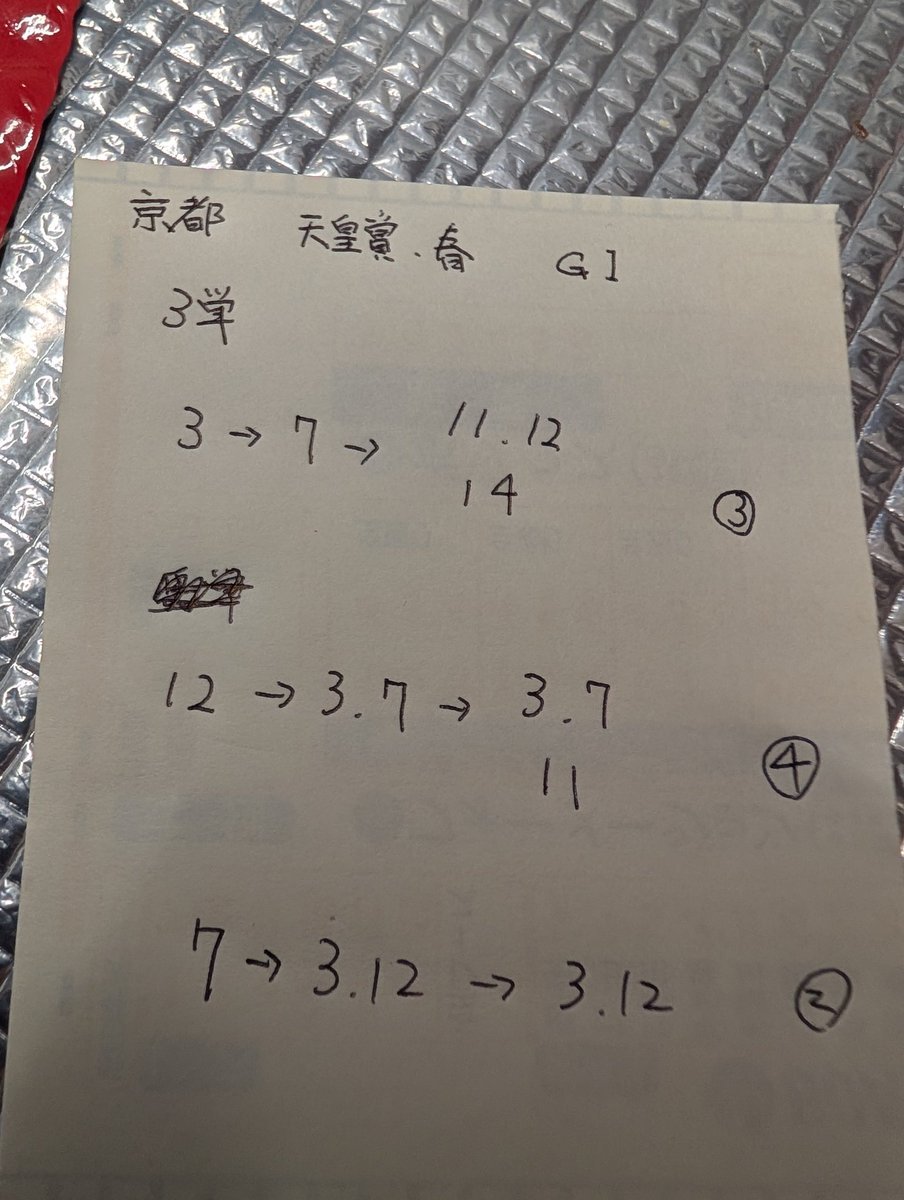 京都 天皇賞.春 GI
3単
3→7→ 11.12
14
③
12→3.7→3.7
11
④
7→3.12→3.12 ②